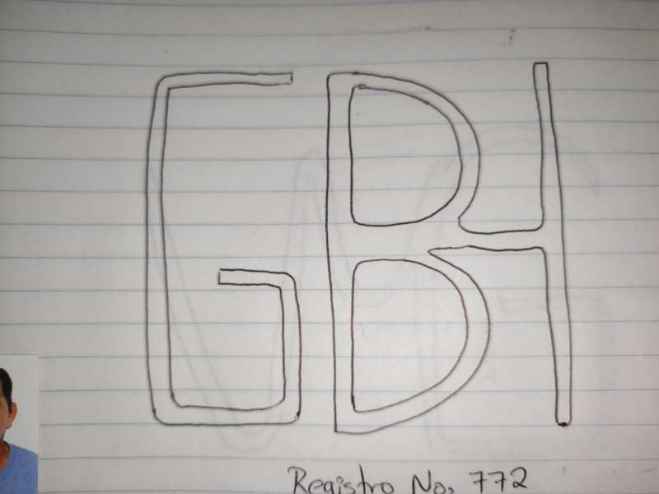 GBH
Registro No. 772